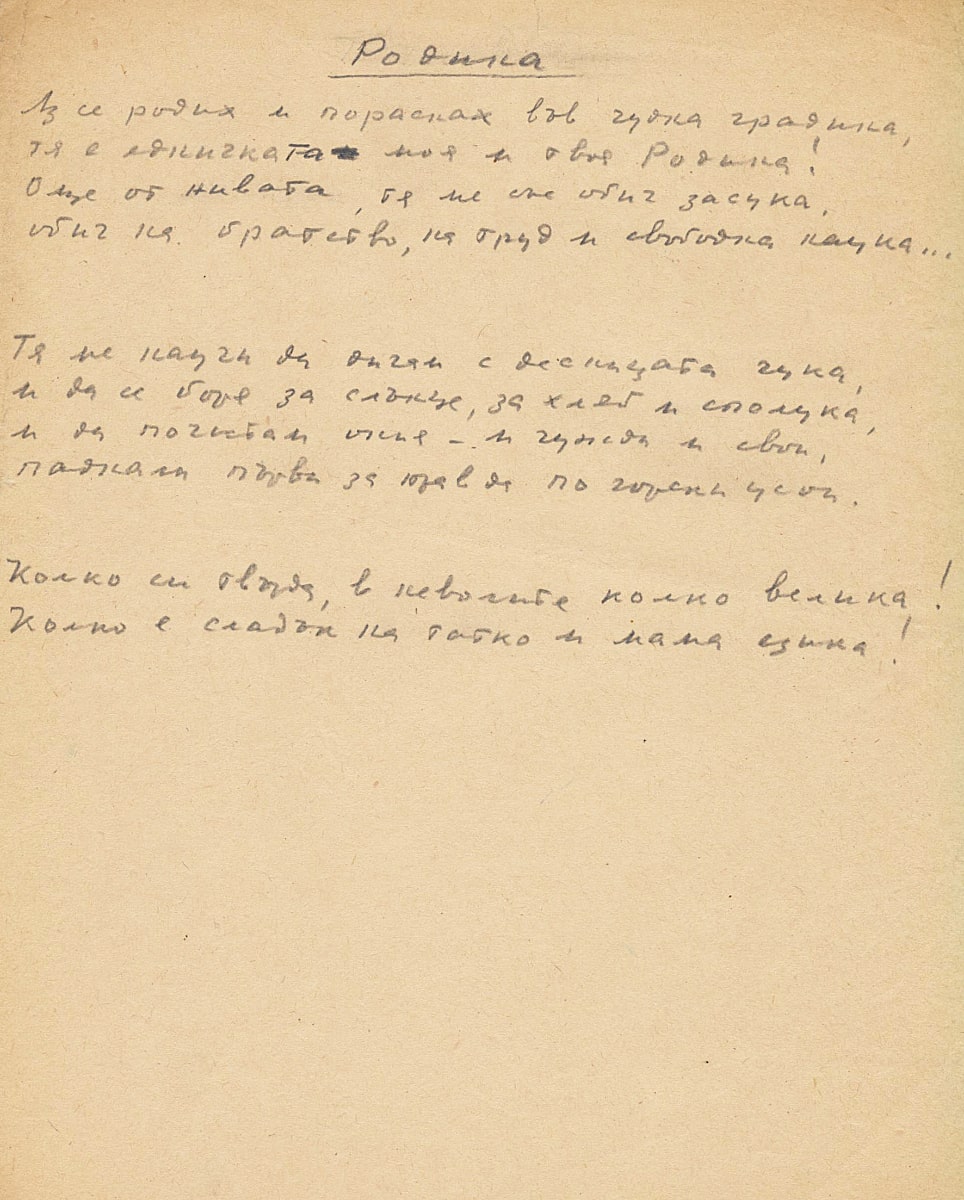 Родина
Аз се родих и пораснах във чудна градина,
тя е едничката моя и твоя Родина!
Още от нивата, тя ме със обич засука,
обич на братство, на труд и свободна наука...
Тя ме научи да дигам с десницата чука,
и да се боря за слънце, за хляб и сполука,
и да почитам ония – и чужди и свои,
паднали първи за правда по горски усои.
Колко си твърда, в неволите колко велика!
Колко е сладък на татко и мама езика!